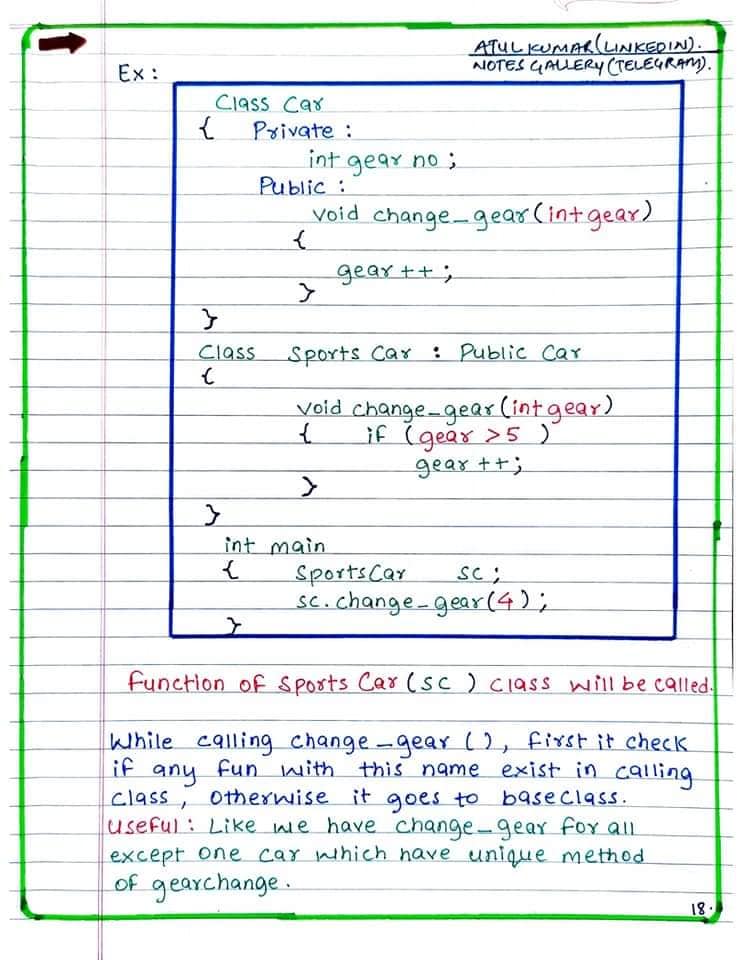 ATUL KUMAR (LINKEDIN).
NOTES GALLERY (TELEGRAM).
Ex :
Class Car
{ Private :
int gear no ;
Public :
void change_gear (int gear)
{
gear ++ ;
}
}
Class Sports Car : Public Car
{
void change_gear (int gear)
{ if (gear >5 )
gear ++;
}
}
int main
{ SportsCar sc ;
sc.change_gear(4) ;
}
Function of Sports Car (sc ) class will be called.
While calling change_gear ( ), first it check
if any fun with this name exist in calling
class , otherwise it goes to baseclass.
Useful : Like we have change_gear for all
except one car which have unique method
of gearchange .
18.